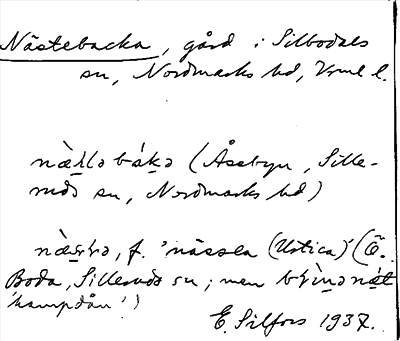 Nästebacka, gård i Silbodals
sn, Nordmarks hd, Vrml l.
(Åsebyn, Sille-
ruds sn, Nordmarks hd)
f. 'nässla (Urtica)' (Ö.
Boda, Silleruds sn; men
'hampdån'!)
E. Silfors 1937.